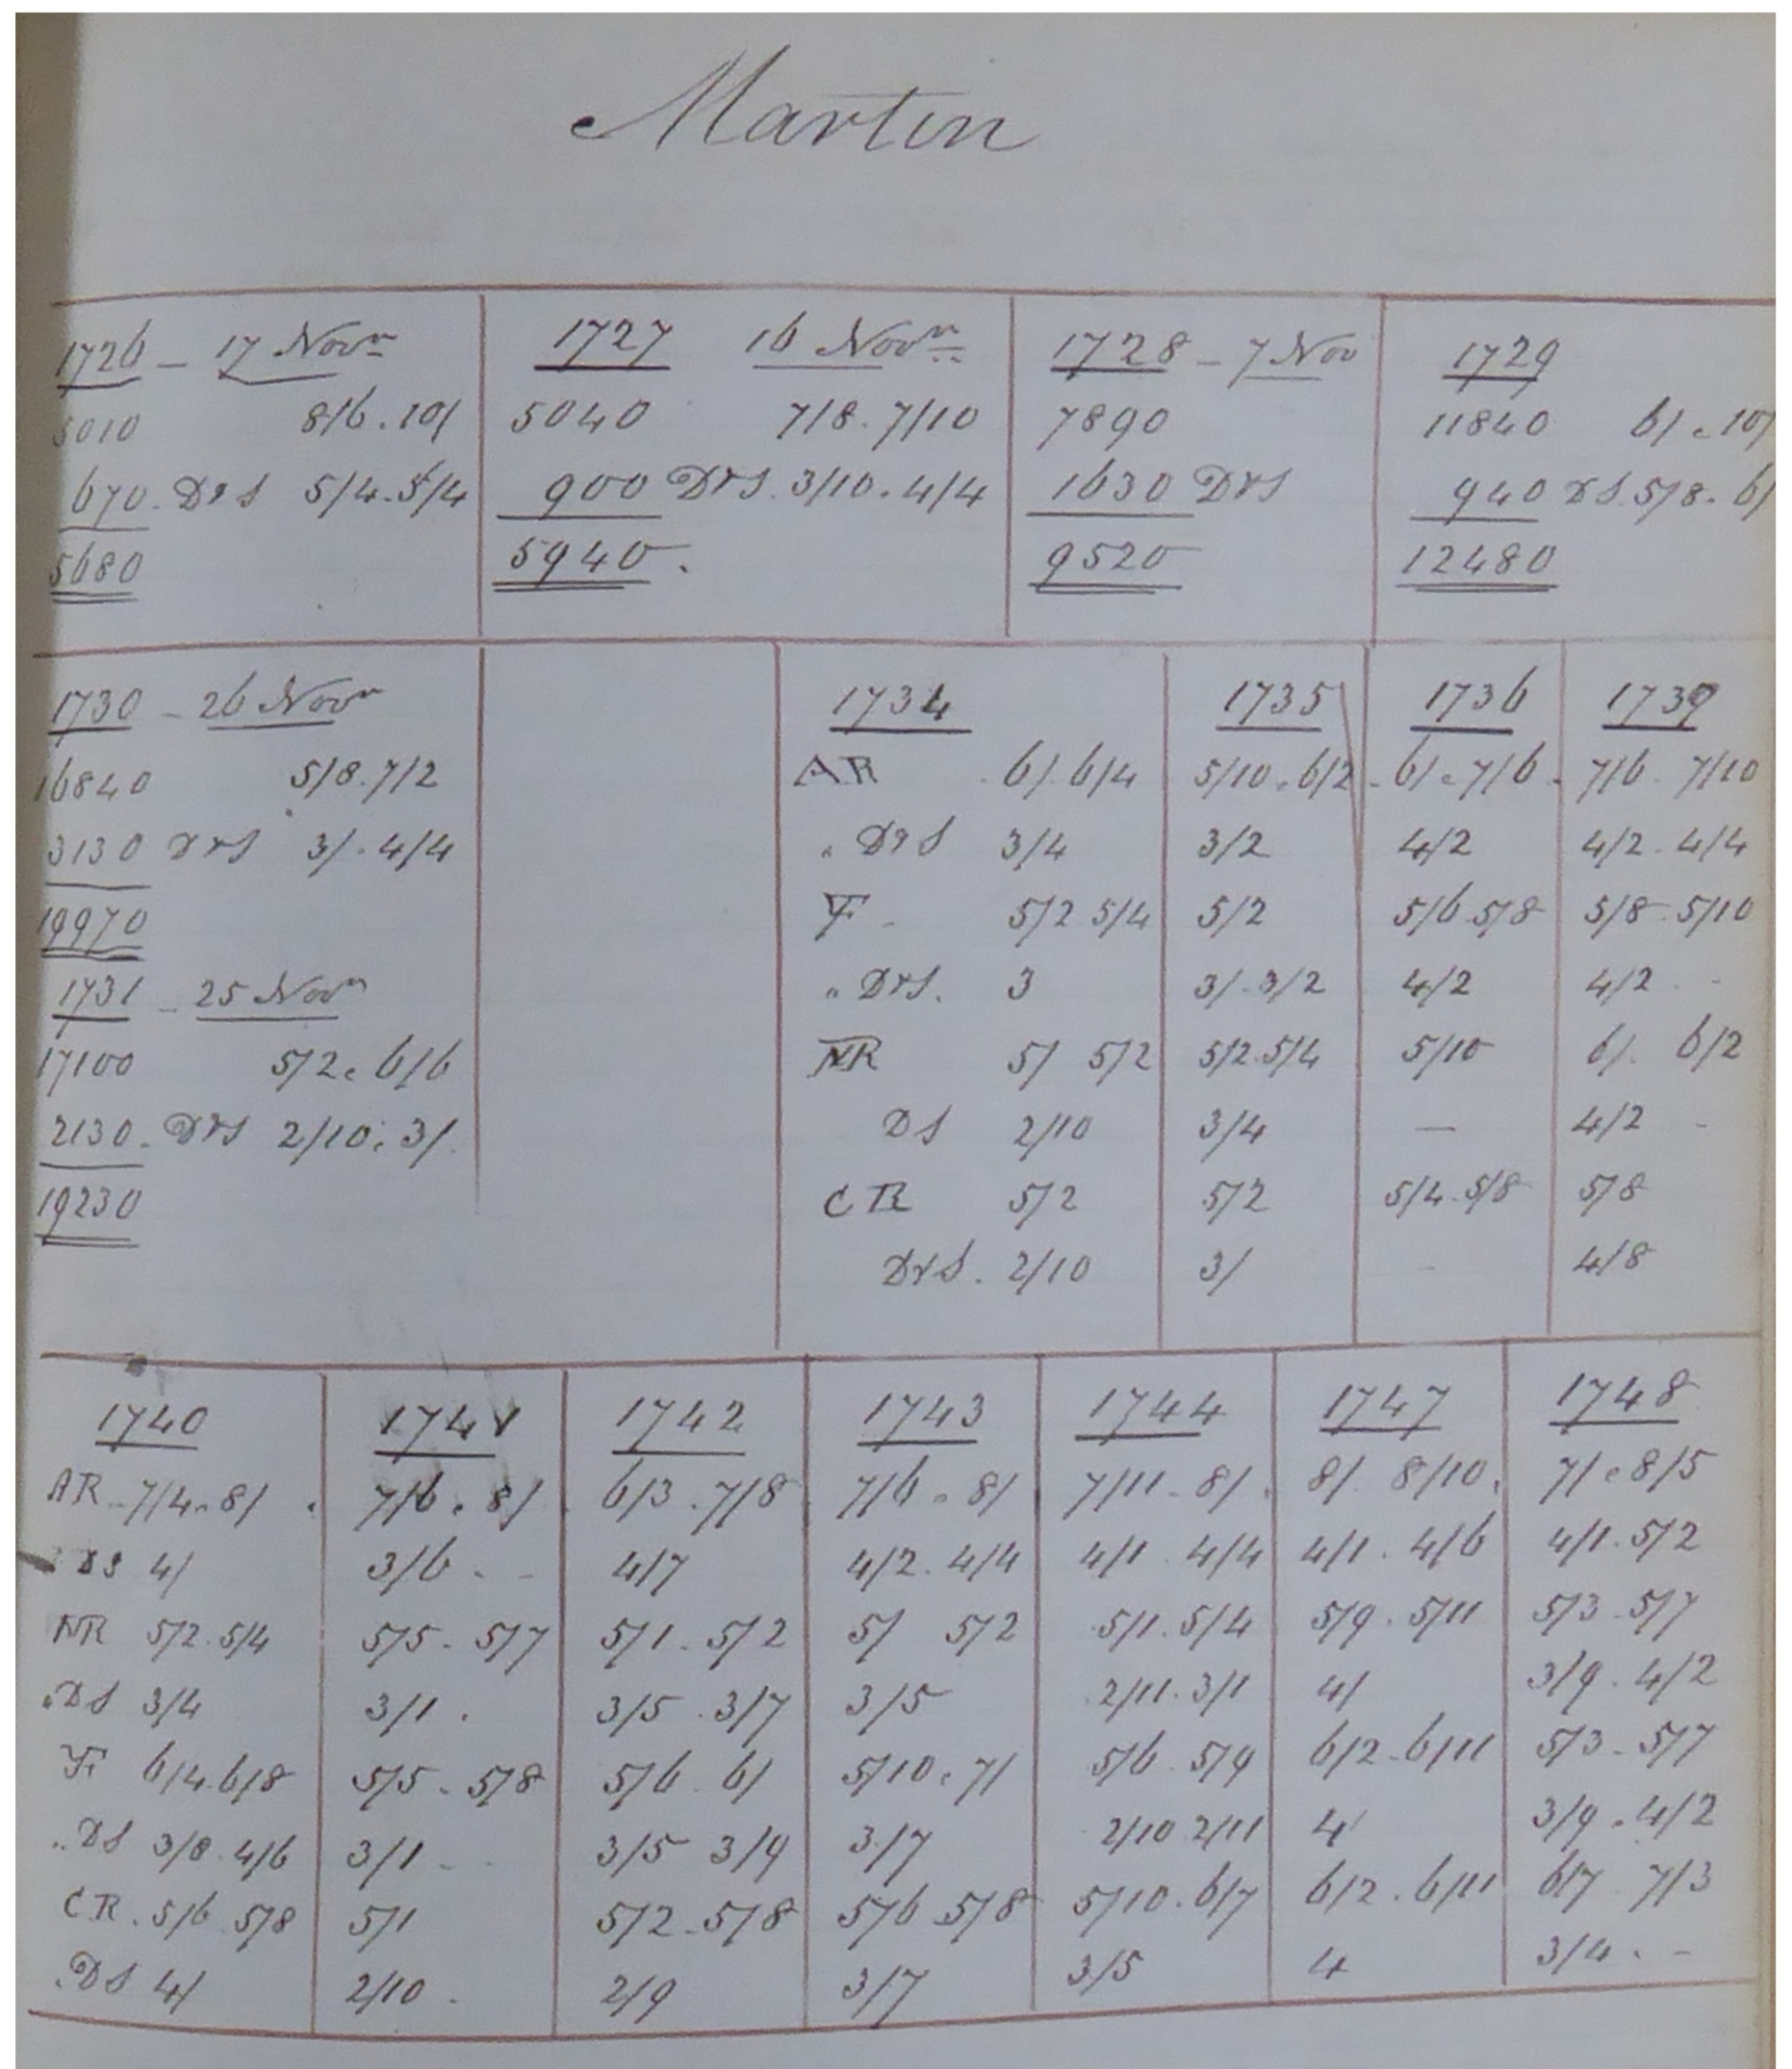 Martin
1726 - 17 Novr
5010 8/6 . 10/
670 . Drs 5/4 . 5/4
5680
1727 16 Novr
5040 7/8 . 7/10
900 Drs . 3/10 . 4/4
5940 .
1728 - 7 Nov
7890
1630 Drs
9520
1729
11840 6/ . 10/
940 Ds . 5/8 . 6/
12480
1730 - 26 Novr
16840 5/8 . 7/2
3130 Drs 3/ . 4/4
19970
1731 - 25 Novr
17100 5/2 . 6/6
2130 . Drs 2/10 . 3/.
19230
1734 1735 1736 1739
AR 6/. 6/4 5/10 . 6/2 - 6/ . 7/6 . 7/6 . 7/10
" Drs 3/4 3/2 4/2 4/2 . 4/4
F - 5/2 5/4 5/2 5/6 . 5/8 5/8 . 5/10
" Drs. 3 3/ . 3/2 4/2 4/2 . -
NR 5/ 5/2 5/2 . 5/4 5/10 6/. 6/2
DS 2/10 3/4 — 4/2 -
CR 5/2 5/2 5/4 . 5/8 5/8
Drs . 2/10 3/ - 4/8
1740 1741 1742 1743 1744 1747 1748
AR - 7/4 . 8/ . 7/6 . 8/ . 6/3 . 7/8 7/6 . 8/ 7/11 . 8/ . 8/ . 8/10 . 7/ . 8/5
DS 4/ 3/6 . - 4/7 4/2 . 4/4 4/1 . 4/4 4/1 . 4/6 4/1 . 5/2
NR 5/2 . 5/4 5/5 . 5/7 5/1 . 5/2 5/ 5/2 5/1 . 5/4 5/9 . 5/11 5/3 . 5/7
" DS 3/4 3/1 . 3/5 . 3/7 3/5 2/11 . 3/1 4/ 3/9 . 4/2
F 6/4 . 6/8 5/5 . 5/8 5/6 . 6/ 5/10 . 7/ 5/6 . 5/9 6/2 . 6/11 5/3 . 5/7
" DS 3/8 . 4/6 3/1 - . 3/5 3/9 3/7 2/10 2/11 4/ 3/9 . 4/2
CR . 5/6 . 5/8 5/1 5/2 . 5/8 5/6 5/8 5/10 . 6/7 6/2 . 6/11 6/7 . 7/3
" DS 4/ 2/10 . 2/9 3/7 3/5 4 3/4 . -